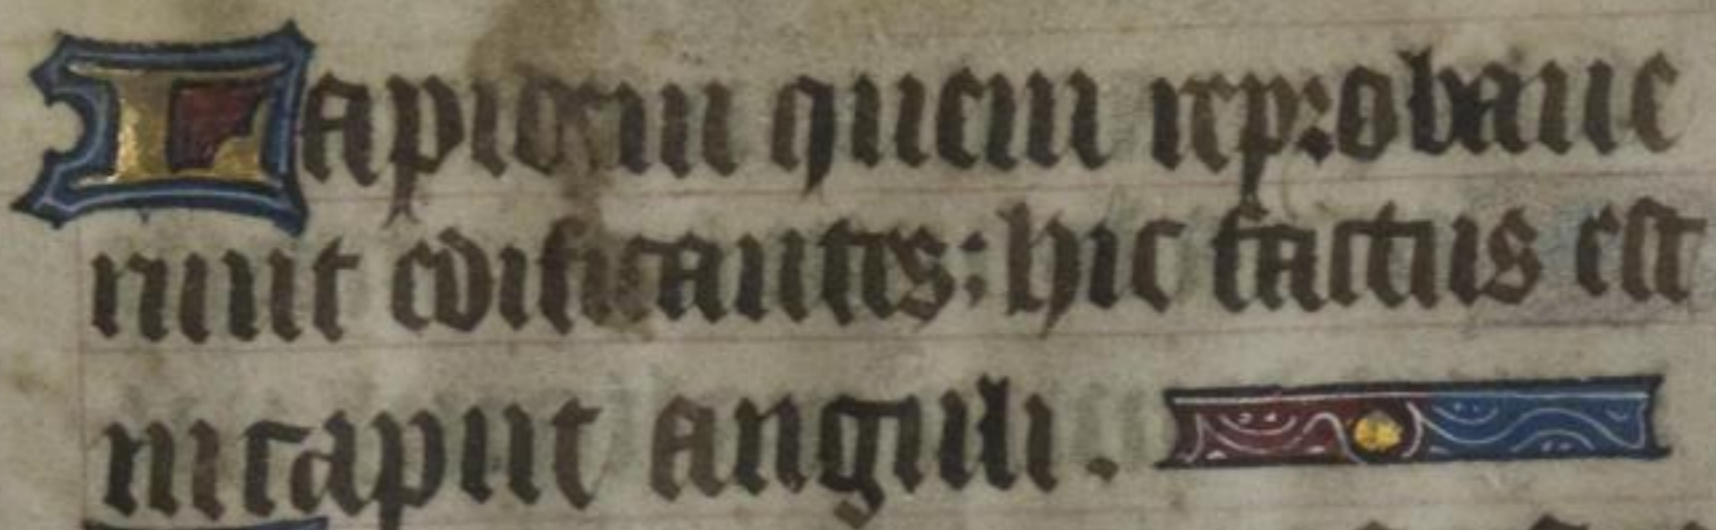 Lapidem quem reprobaue
runt edificantes: hic factus est
in caput anguli.